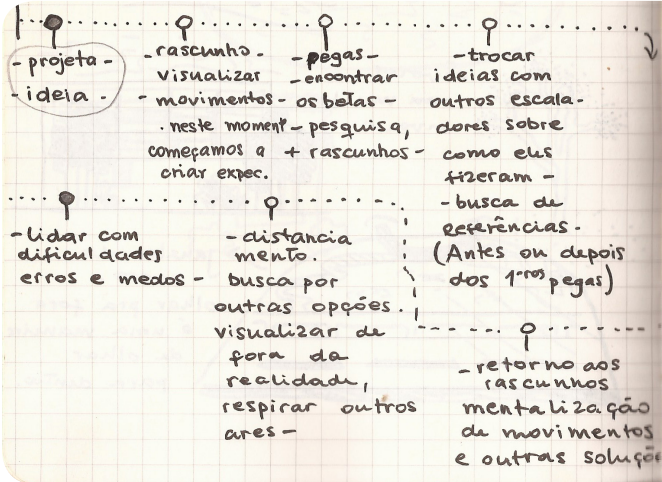 - projeta -
- ideia -
- rascunho -
visualizar
- movimentos -
. neste moment
começamos a
criar expec.
- pegas -
- encontrar
os betas -
- pesquisa,
+ rascunhos -
- trocar
ideias com
outros escala-
dores sobre
como eles
fizeram -
- busca de
referências -
(Antes ou depois
dos 1ºros pegas)
- lidar com
dificuldades
erros e medos -
- distancia
mento.
busca por
outras opções.
visualizar de
fora da
realidade,
respirar outros
ares -
- retorno aos
rascunhos
mentalização
de movimentos
e outras soluçõe